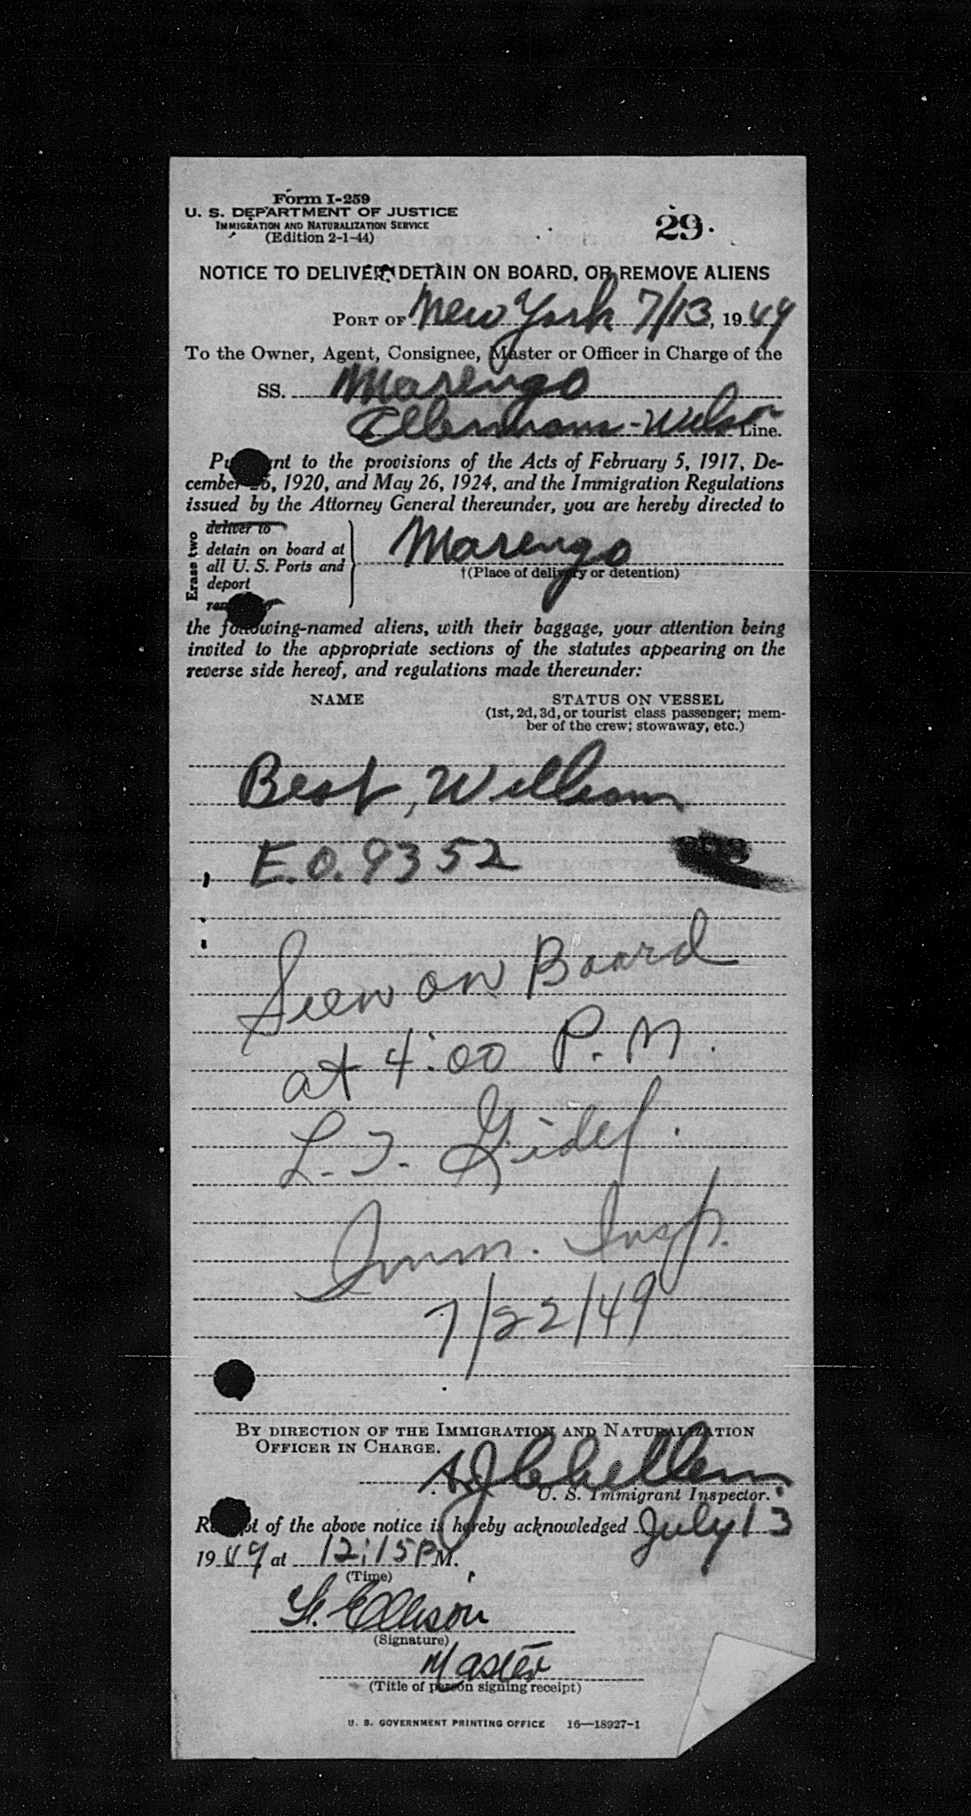 Form I-259
U. S. DEPARTMENT OF JUSTICE
IMMIGRATION AND NATURALIZATION SERVICE
(Edition 2-1-44)
29.
NOTICE TO DELIVER, DETAIN ON BOARD, OR REMOVE ALIENS
PORT OF New York 7/13, 1949
To the Owner, Agent, Consignee, Master or Officer in Charge of the
SS. Marengo
Ellermans-Wilson Line.
Pursuant to the provisions of the Acts of February 5, 1917, De-
cember 26, 1920, and May 26, 1924, and the Immigration Regulations
issued by the Attorney General thereunder, you are hereby directed to
Erase two
deliver to
detain on board at
all U. S. Ports and
deport
Marengo
†(Place of delivery or detention)
the following-named aliens, with their baggage, your attention being
invited to the appropriate sections of the statutes appearing on the
reverse side hereof, and regulations made thereunder:
NAME
STATUS ON VESSEL
(1st, 2d, 3d, or tourist class passenger; mem-
ber of the crew; stowaway, etc.)
Best, William
E.O. 9352
Seen on Board
at 4:00 P.M.
L. J.
Imm. Insp.
7/22/49
BY DIRECTION OF THE IMMIGRATION AND NATURALIZATION
OFFICER IN CHARGE.
U. S. Immigrant Inspector.
Receipt of the above notice is hereby acknowledged July 13
1949 at 12:15 P M.
(Time)
Ellison
(Signature)
Master
(Title of person signing receipt)
U. S. GOVERNMENT PRINTING OFFICE 16—18927-1